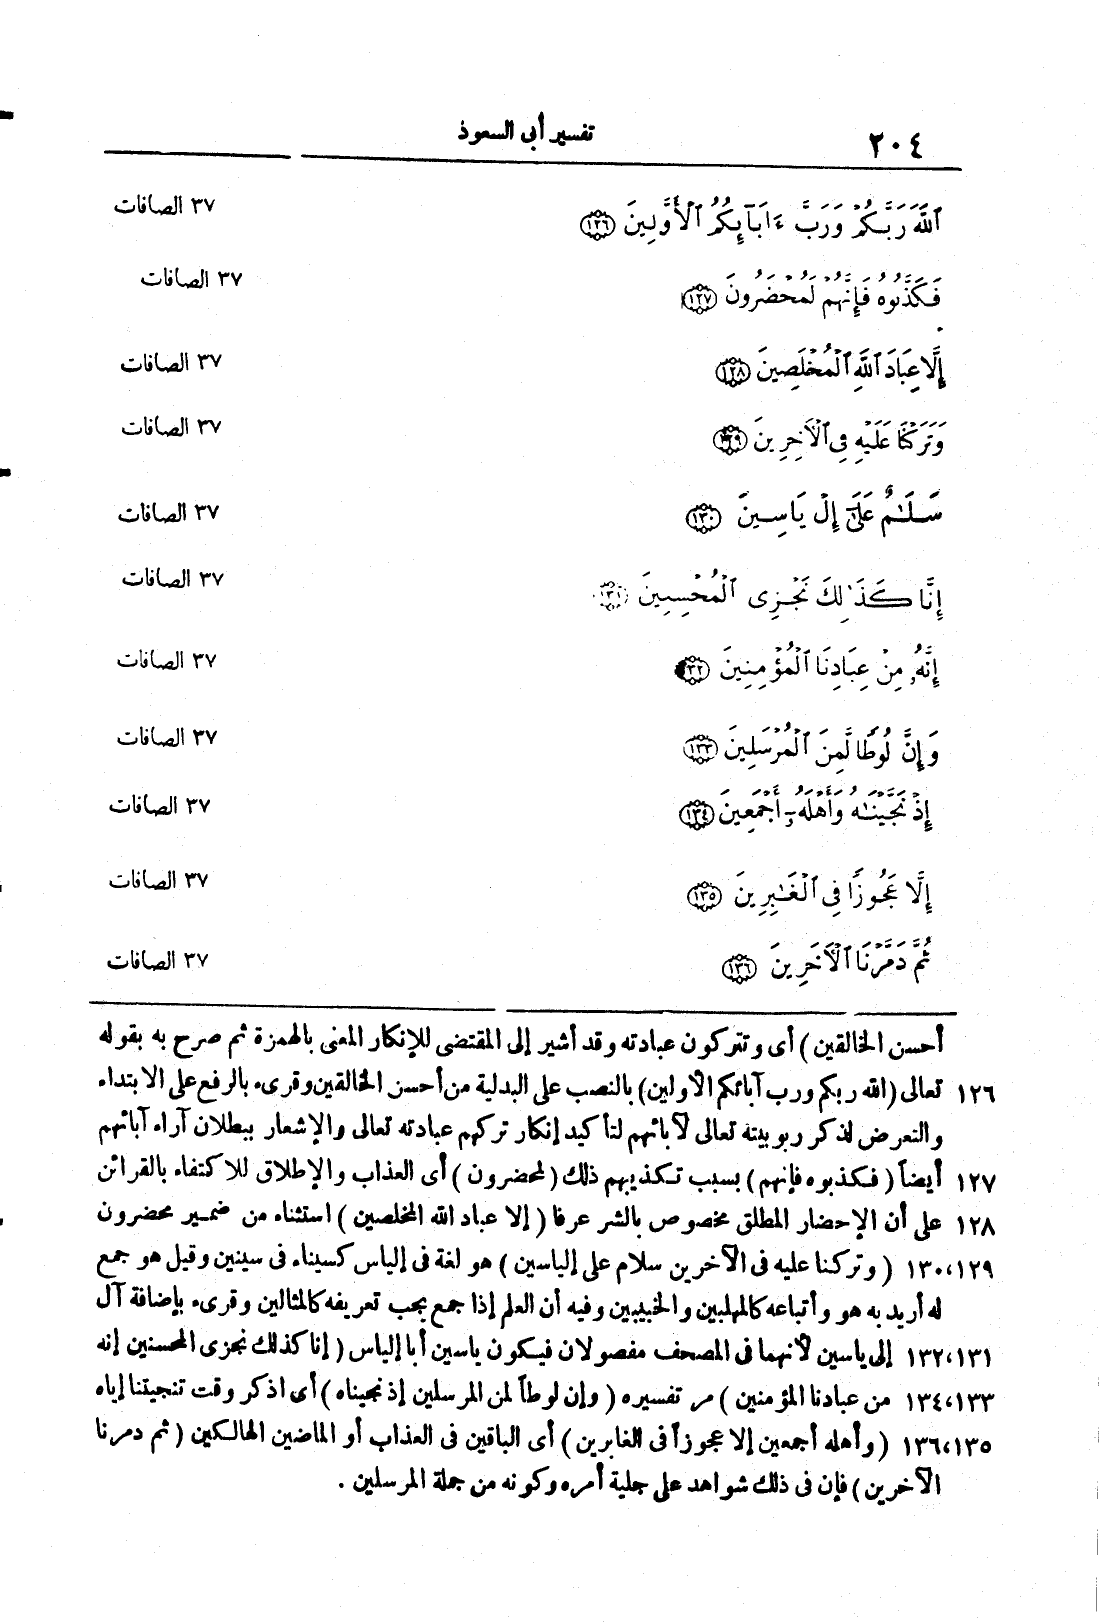 ٢٠٤ تفسير أبى السعود
ٱللَّهَ رَبَّكُمْ وَرَبَّ ءَابَآئِكُمُ ٱلْأَوَّلِينَ ١٢٦ ٣٧ الصافات
فَكَذَّبُوهُ فَإِنَّهُمْ لَمُحْضَرُونَ ١٢٧ ٣٧ الصافات
إِلَّا عِبَادَ ٱللَّهِ ٱلْمُخْلَصِينَ ١٢٨ ٣٧ الصافات
وَتَرَكْنَا عَلَيْهِ فِى ٱلْآخِرِينَ ١٢٩ ٣٧ الصافات
سَلَٰمٌ عَلَىٰٓ إِلْ يَاسِينَ ١٣٠ ٣٧ الصافات
إِنَّا كَذَٰلِكَ نَجْزِى ٱلْمُحْسِنِينَ ١٣١ ٣٧ الصافات
إِنَّهُۥ مِنْ عِبَادِنَا ٱلْمُؤْمِنِينَ ١٣٢ ٣٧ الصافات
وَإِنَّ لُوطًا لَّمِنَ ٱلْمُرْسَلِينَ ١٣٣ ٣٧ الصافات
إِذْ نَجَّيْنَٰهُ وَأَهْلَهُۥٓ أَجْمَعِينَ ١٣٤ ٣٧ الصافات
إِلَّا عَجُوزًا فِى ٱلْغَٰبِرِينَ ١٣٥ ٣٧ الصافات
ثُمَّ دَمَّرْنَا ٱلْآخَرِينَ ١٣٦ ٣٧ الصافات
أحسن الخالقين ) أى وتتركون عبادته وقد أشير إلى المقتضى للإنكار المعنى بالهمزة ثم صرح به بقوله
١٢٦ تعالى (الله ربكم ورب آبائكم الأولين) بالنصب على البدلية من أحسن الخالقين وقرىء بالرفع على الابتداء
والتعرض لذكر ربوبيته تعالى لآبائهم لتأكيد إنكار تركهم عبادته تعالى والإشعار ببطلان آراء آبائهم
١٢٧ أيضاً ( فكذبوه فإنهم ) بسبب تكذيبهم ذلك ( لمحضرون ) أى العذاب والإطلاق للاكتفاء بالقرائن
١٢٨ على أن الإحضار المطلق مخصوص بالشر عرفا ( إلا عباد الله المخلصين ) استثناء من ضمير محضرون
١٣٠،١٢٩ ( وتركنا عليه فى الآخرين سلام على إلياسين ) هو لغة فى إلياس كسيناء فى سينين وقيل هو جمع
له أريد به هو وأتباعه كالمهلبين والخبيبين وفيه أن العلم إذا جمع يجب تعريفه كالمثالين وقرىء بإضافة آل
١٣٢،١٣١ إلى ياسين لأنهما فى المصحف مفصولان فيكون ياسين أبا إلياس ( إنا كذلك نجزى المحسنين إنه
١٣٤،١٣٣ من عبادنا المؤمنين ) مر تفسيره ( وإن لوطاً لمن المرسلين إذ نجيناه ) أى اذكر وقت تنجيتنا إياه
١٣٦،١٣٥ ( وأهله أجمعين إلا عجوزاً فى الغابرين ) أى الباقين فى العذاب أو الماضين الهالكين ( ثم دمرنا
الآخرين ) فإن فى ذلك شواهد على جلية أمره وكونه من جملة المرسلين .